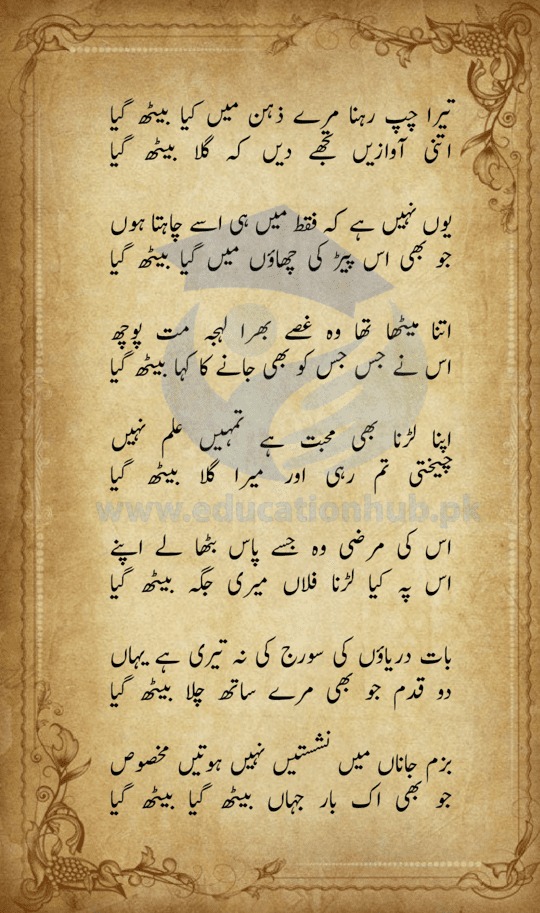 تیرا چپ رہنا مرے ذہن میں کیا بیٹھ گیا
اتنی آوازیں تجھے دیں کہ گلا بیٹھ گیا
یوں نہیں ہے کہ فقط میں ہی اسے چاہتا ہوں
جو بھی اس پیڑ کی چھاؤں میں گیا بیٹھ گیا
اتنا میٹھا تھا وہ غصے بھرا لہجہ مت پوچھ
اس نے جس جس کو بھی جانے کا کہا بیٹھ گیا
اپنا لڑنا بھی محبت ہے تمہیں علم نہیں
چیختی تم رہی اور میرا گلا بیٹھ گیا
www.educationhub.pk
اس کی مرضی وہ جسے پاس بٹھا لے اپنے
اس پہ کیا لڑنا فلاں میری جگہ بیٹھ گیا
بات دریاؤں کی سورج کی نہ تیری ہے یہاں
دو قدم جو بھی مرے ساتھ چلا بیٹھ گیا
بزم جاناں میں نشستیں نہیں ہوتیں مخصوص
جو بھی اک بار جہاں بیٹھ گیا بیٹھ گیا